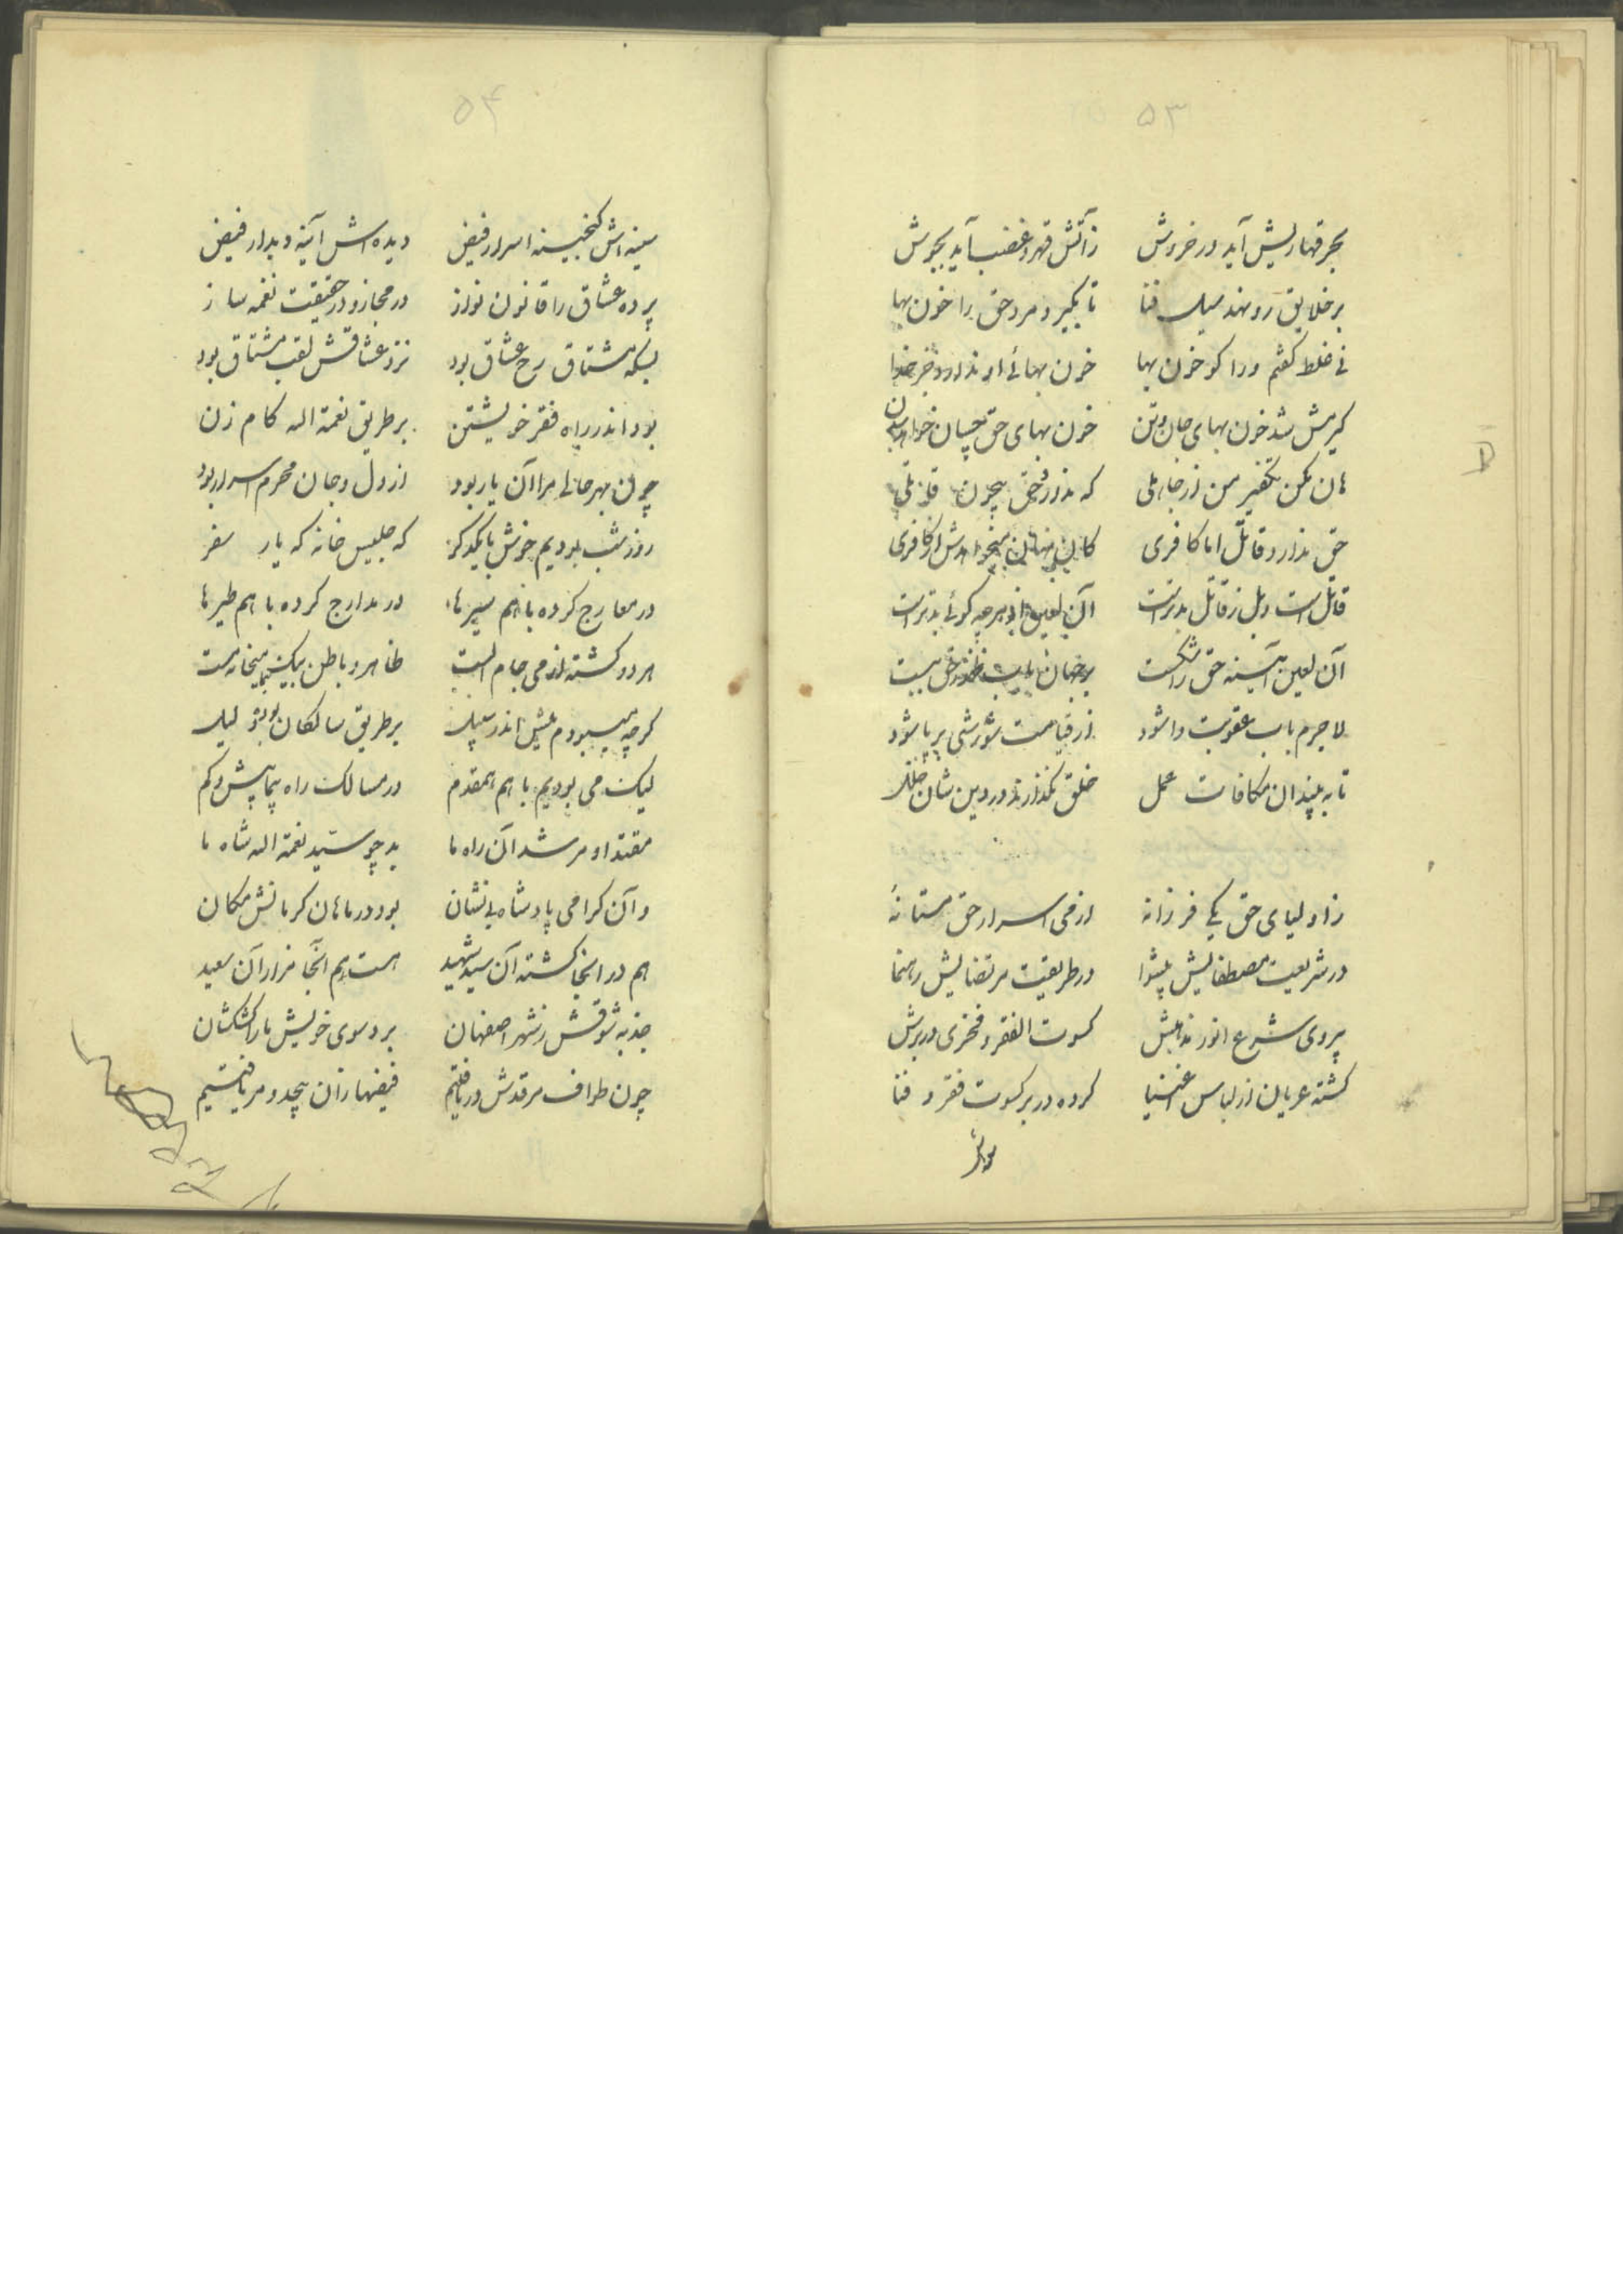 ۵۳
بحر قهاریش آید در خروش زآتش قهر و غضب آید بجوش
بر خلایق رو نهد سیل فنا تا بگیرد مرد حق را خون بها
نی غلط گفتم ورا کو خون بها خون بهائی او ندارد جز خدا
گیرمش شد خون بهای جان و تن خون بهای حق چسان خواهد بدن
هان مکن تکفیر من از جاهلی که ندارد حق بیچون قاتلی
حق ندارد قاتل اما کافری کاین منهان
قاتل است و بل ز قاتل بدتر است آن لعین از هرچه گوئی بدتر است
آن لعین آیینه حق را شکست بر جهان باب ظهور حق ببست
لاجرم باب عقوبت وا شود از قیامت شورشی برپا شود
تا به بینند آن مکافات عمل خلق نگذارند در دین شان خلل
زاولیای حق یکی فرزانه ازمی اسرار حق مستانهٔ
در شریعت مصطفایش پیشوا در طریقت مرتضایش رهنما
پروی شرع انور مذهبش کسوت الفقر و فخری در برش
گشته عریان از لباس اغنیا کرده در بر کسوت فقر و فنا
۵۴
سینه اش گنجینه اسرار فیض دیده اش آینه دیدار فیض
پرده عشاق را قانون نواز در مجاز و در حقیقت نغمه ساز
بسکه مشتاق رخ عشاق بود نزد عشاقش لقب مشتاق بود
بود اندر راه فقر خویشتن بر طریق نعمة اله کام زن
چون بهر حالی مرا آن یار بود از دل و جان محرم اسرار بود
روز شب بودیم خوش با یکدگر که جلیس خانه که یار سفر
در معارج کرده با هم سیرها در مدارج کرده با هم طیرها
هر دو گشته از می جام الست ظاهر و باطن بیک میخانه مست
گرچه می‌بودم بیش اندر سبیل بر طریق سالکان بودی لیک
لیک می بودیم با هم همقدم در مسالک راه پیما بیش و کم
مقتدا و مرشد آن راه ما بد چو سید نعمة اله شاه ما
و آن گرامی پادشاه بی نشان بود در ماهان کرمانش مکان
هم در انجا گشته آن سید شهید هست هم آنجا مزار آن سعید
جذبه شوقش ز شهر اصفهان برد سوی خویش ما را کشکشان
چون طواف مرقدش دریافتیم فیضها زان بیحد و مر یافتیم